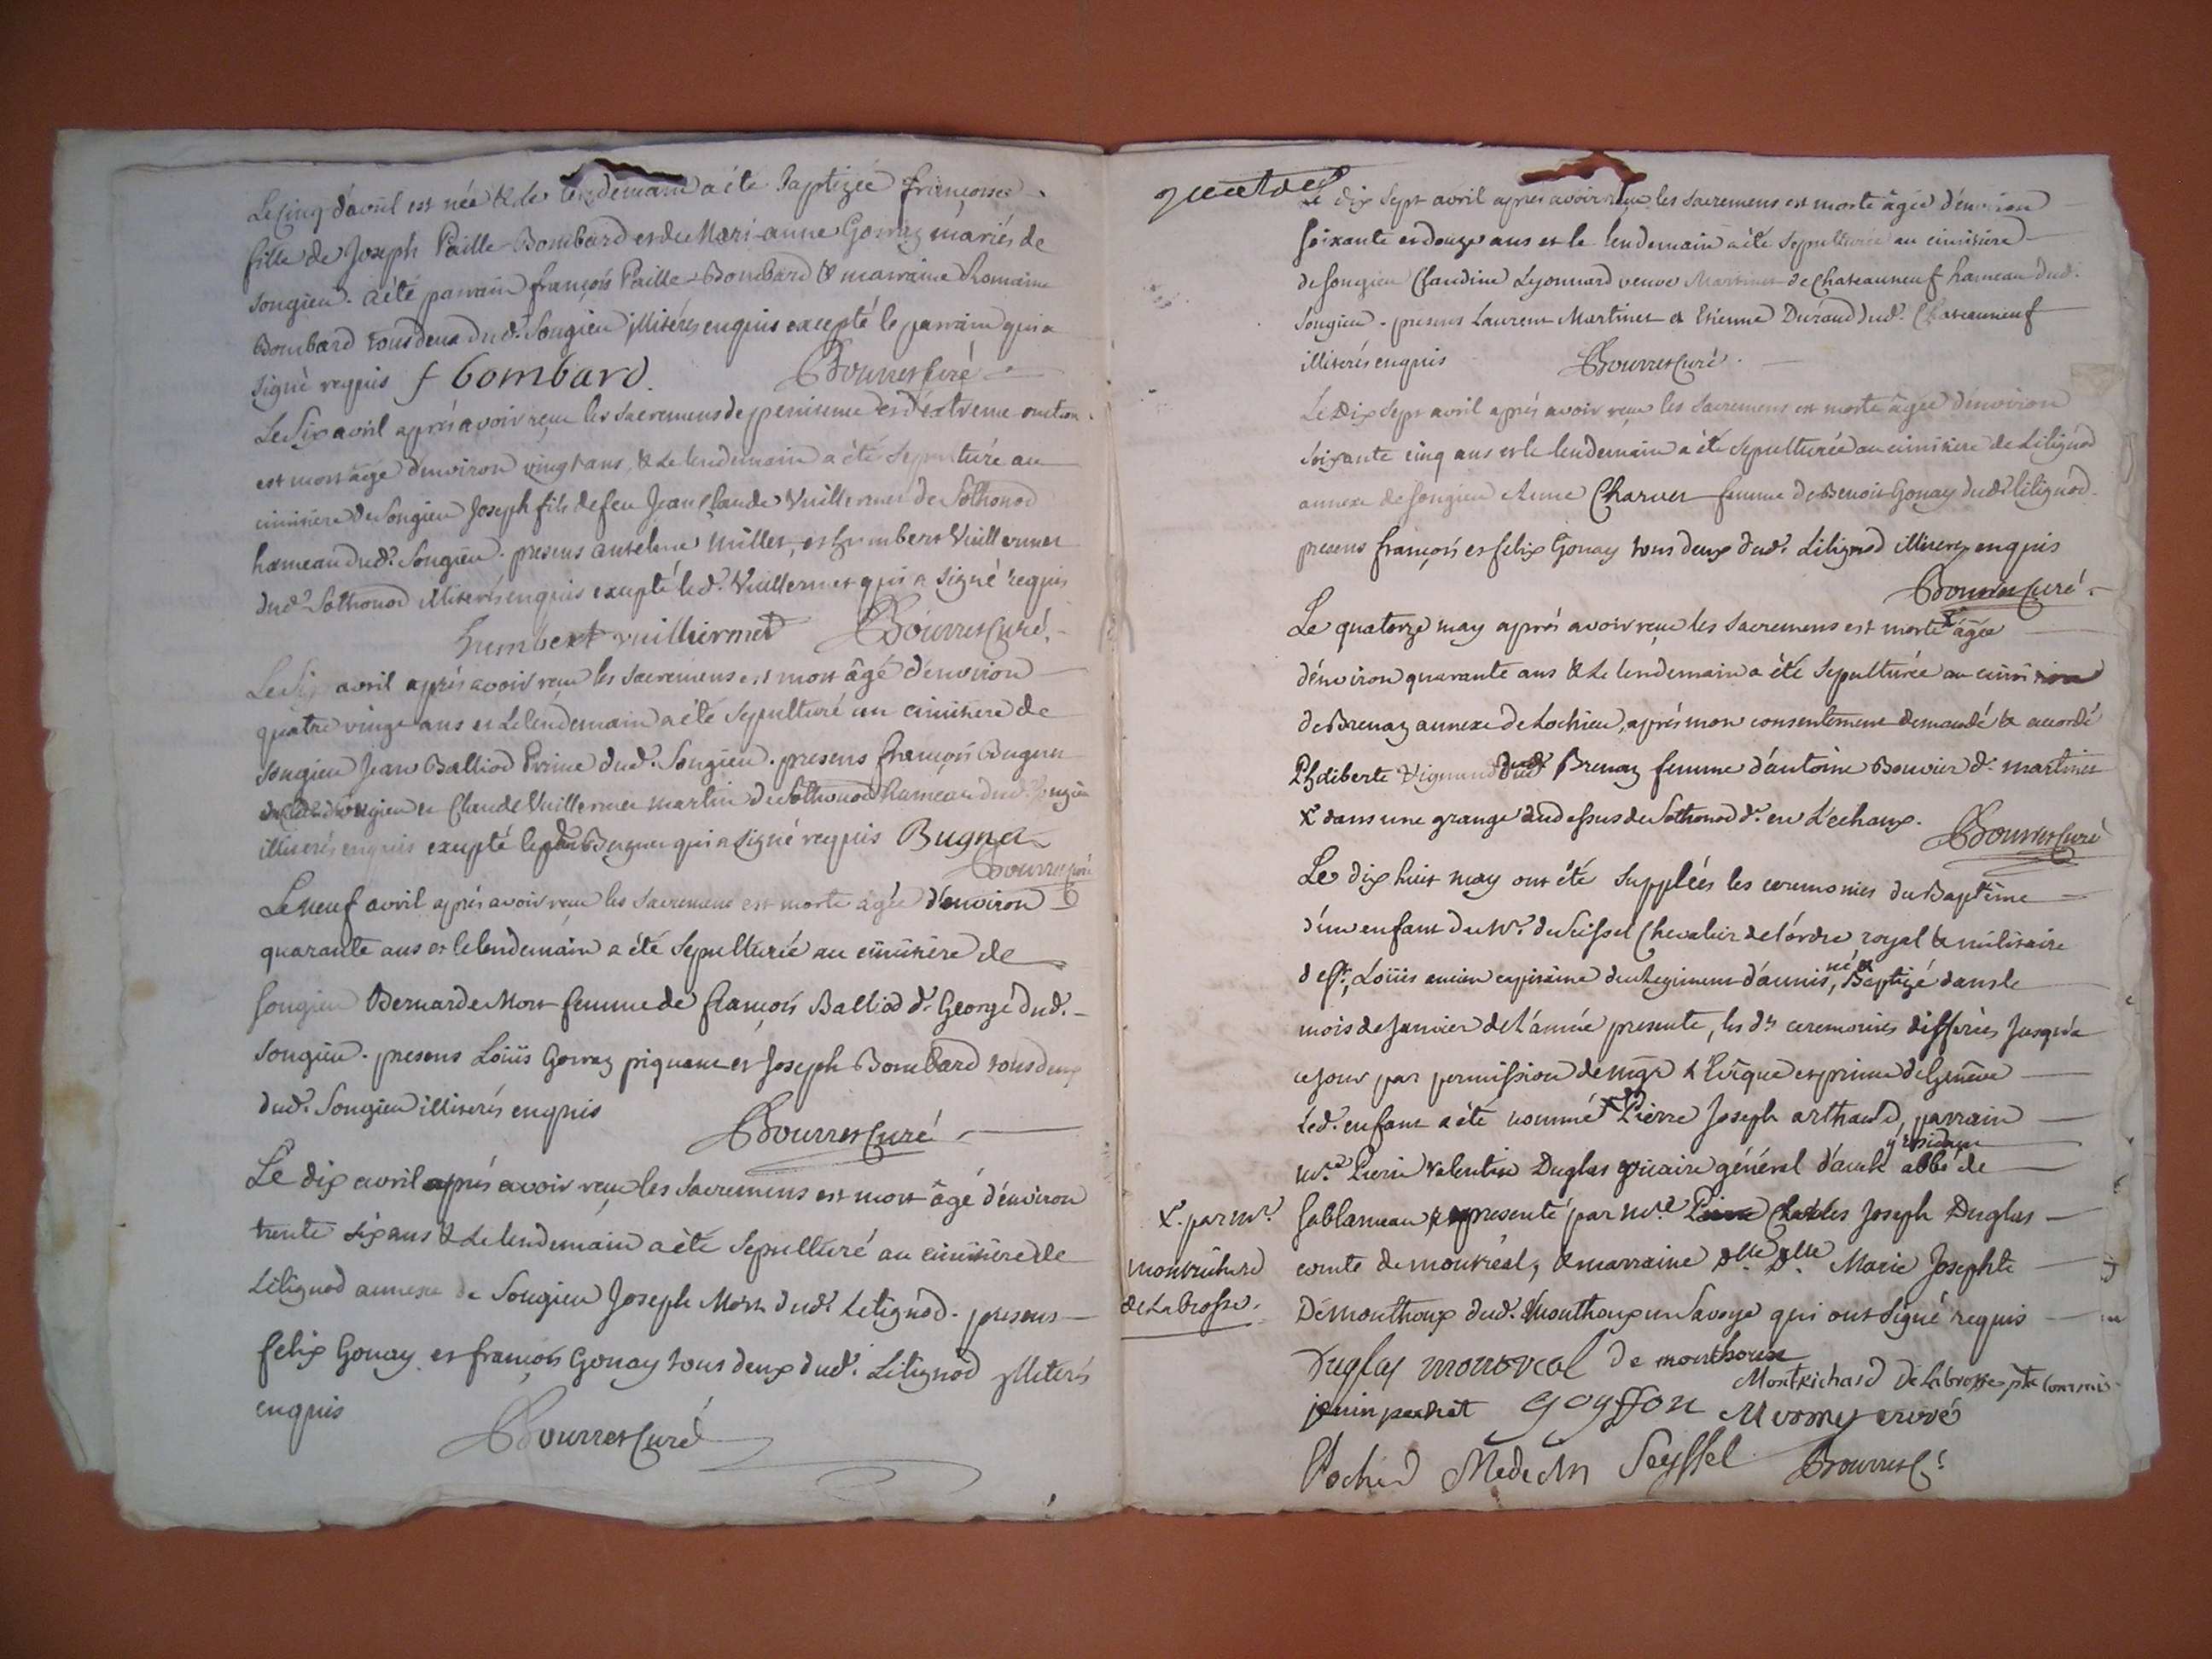 Le Cinq d'avril est née & le lendemain a été Baptizée françoise
fille de Joseph Paille-Bombard et de Mari-anne Gonraz mariés de
Songieu. a été parrain françois Paille-Bombard & marraine Romaine
Bombard tous deux dud. Songieu illiterés enquis excepté le parrain qui a
signé requis f bombard. Bourret Curé
Le Six avril aprés avoir reçu les sacremens de penitence et d'extreme-onction
est mort âgé d'environ vingt ans, & le lendemain a été sepulturé au
cimitiere de Songieu Joseph fils de feu Jean Claude Vuillermet de Sothonod
hameau dud. Songieu. presens antelme millet, et humbert Vuillermet
dud. Sothonod illiterés enquis exepté led. Vuillermet qui a signé requis
humbert vuilliermet Bourret Curé.
Le Six avril aprés avoir reçu les sacremens est mort âgé d'environ
quatre vingt ans et Le lendemain a été sepulturé au cimitiere de
Songieu Jean Balliod Prime dud. Songieu. presens françois Bugnet
dud. Songieu et Claude Vuillermet martin de Sothonod hameau dud. Songieu
illiterés enquis exepté led. Bugnet qui a signé requis Bugnet
Bourret Curé
Le neuf avril aprés avoir reçu les sacremens est morte âgée d'environ
quarante ans et le lendemain a été sepulturée au cimitière de
Songieu Bernarde Mort femme de françois Balliod dt. George dud.
Songieu. presens Loüis Gonraz piquant et Joseph Bombard tous deux
dud. Songieu illiterés enquis
Bourret Curé
Le dix avril aprés avoir reçu les sacremens est mort âgé d'environ
trente six ans & Le lendemain a été sepulturé au cimitière de
Lilignod annexe de Songieu Joseph Mort dud. Lilignod. presens
felix Gonay et françois Gonay tous deux dud. Lilignod illiterés
enquis
Bourret Curé
Le dix sept avril aprés avoir reçu les sacremens est morte âgée d'environ
soixante et douze ans et le lendemain a été sepulturée au cimitiere
de Songieu Claudine Lyonnard veuve Martinet de Chateauneuf hameau dud.
Songieu. presens Laurent Martinet et Etienne Durand dud. Chateauneuf
illiterés enquis Bourret Curé.
Le dix sept avril aprés avoir reçu les sacremens est morte âgée d'environ
soixante cinq ans et le lendemain a été sepulturée au cimitiere de Lilignod
annexe de Songieu Anne Charvet femme de Benoit Gonay dud. Lilignod.
presens françois et felix Gonay tous deux dud. Lilignod illiterés enquis
Bourret Curé.
Le quatorze may aprés avoir reçu les sacremens est morte X âgée
d'environ quarante ans & Le lendemain a été sepulturée au cimitiere
de Brenaz annexe de Lochieu, aprés mon consentement demandé & accordé
Philiberte Vignand dud. Brenaz femme d'antoine Bouvier dt. martinet
X dans une grange audessus de Sothonod dt. en L'echaux.
Bourret Curé
Le dix huit may ont été suppléés les ceremonies du Baptême
d'un enfant de Mr. de Seissel Chevalier de l'ordre royal & militaire
de St. Loüis ancien capitaine du Regiment d'aunis, né & Baptizé dans le
mois de Janvier de L'année presente, les dts ceremonies differées Jusqu'a
ce jour par permission de mgr L'Evêque et prince de Genève
Led. enfant a été nommé Pierre Joseph arthaud, parrain
Mre Pierre Valentin Duglas vicaire général d'auch y residant abbé de
X. par Mr. Sablanceau representé par Mre Charles Joseph Duglas
montrichard comte de montréal, & marraine dlle Marie Josephte
de La brosse. Demonthoux dud. Monthoux en Savoye qui ont signé requis
Duglas montreal de monthoux
Montrichard De Labrosse ptre commis
janin perrat goyffon Mermet curé
Pochet Medecin Seyssel Bourret C.